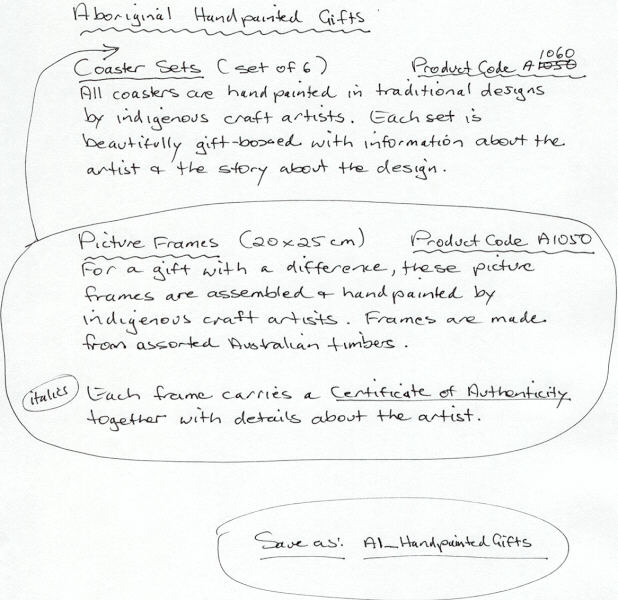 Aboriginal Handpainted Gifts
Coaster Sets (set of 6) Product Code A1050 1060
All coasters are handpainted in traditional designs
by indigenous craft artists. Each set is
beautifully gift-boxed with information about the
artist & the story about the design.
Picture Frames (20x25cm) Product Code A1050
For a gift with a difference, these picture
frames are assembled & handpainted by
indigenous craft artists. Frames are made
from assorted Australian timbers.
italics Each frame carries a Certificate of Authenticity
together with details about the artist.
Save as: A1_HandpaintedGifts